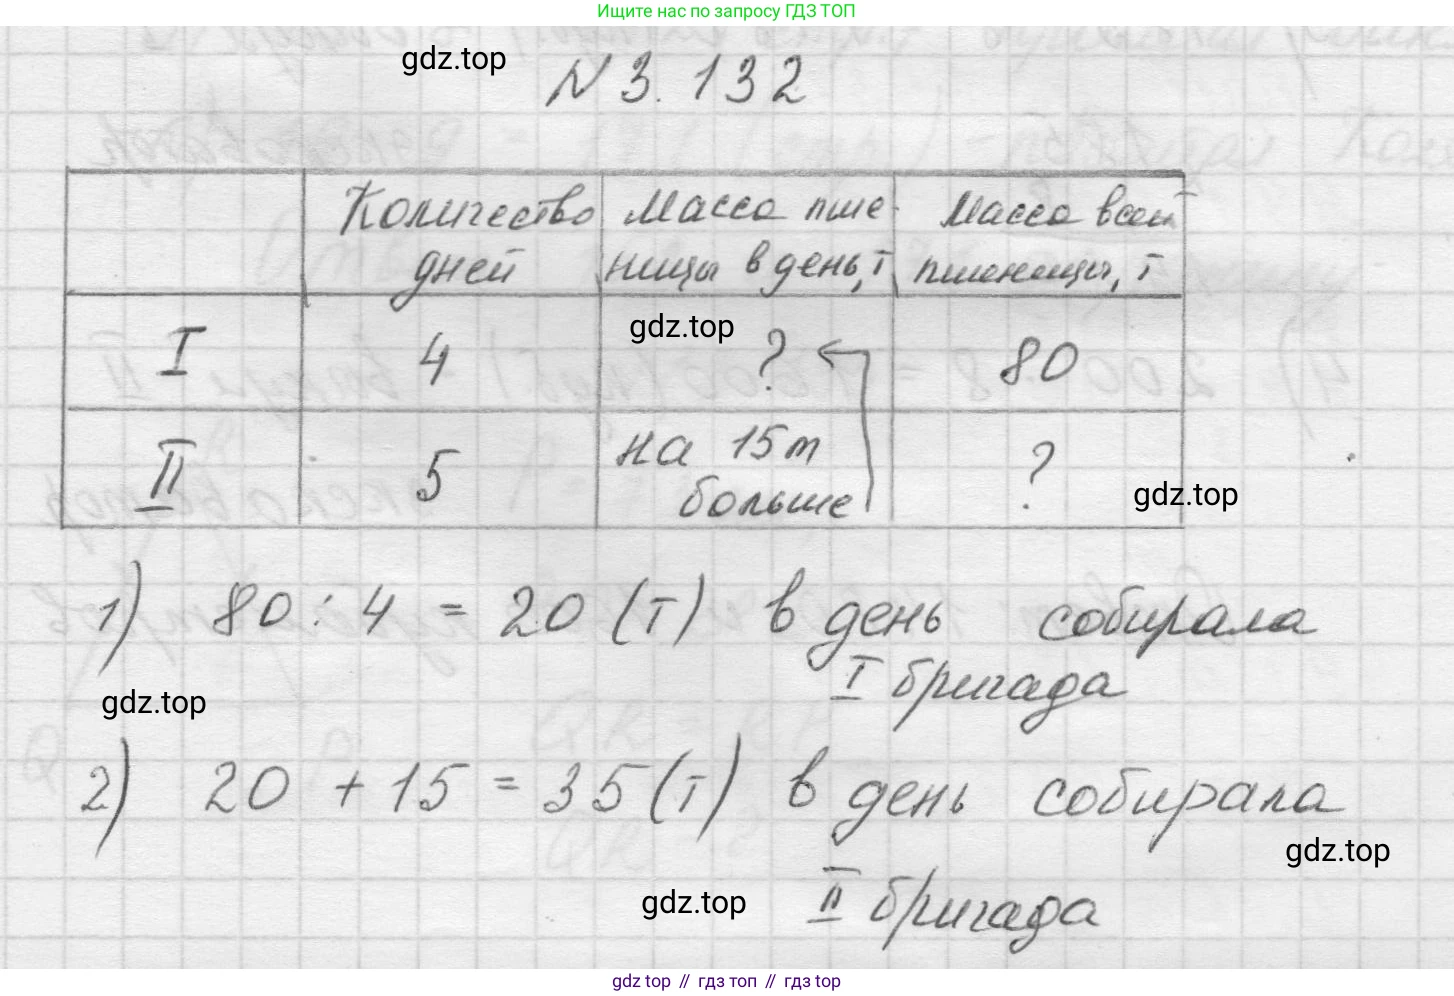 Ищите нас по запросу ГДЗ ТОП
gdz.top
N 3. 132
Количество дней
Масса пше-
ницы в день, т
Масса всей
пшеницы, т
gdz.top
I 4 ? 80
II 5 на 15 т больше ?
gdz.top
1) 80 : 4 = 20 (т) в день собирала
I бригада
gdz.top
2) 20 + 15 = 35 (т) в день собирала
gdz.top
gdz.top
II бригада
gdz top // гдз топ // gdz.top